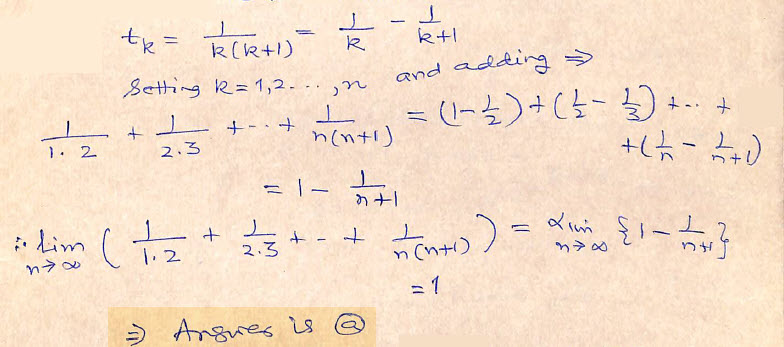 t_k = 1/k(k+1) = 1/k - 1/k+1
Setting k = 1,2...,n and adding ⇒
1/1.2 + 1/2.3 + --- + 1/n(n+1) = (1-1/2) + (1/2 - 1/3) + ... +
+ (1/n - 1/n+1)
= 1 - 1/n+1
∴ lim n→∞ ( 1/1.2 + 1/2.3 + - - + 1/n(n+1) ) = lim n→∞ {1 - 1/n+1}
= 1
⇒ Answer is ⓐ